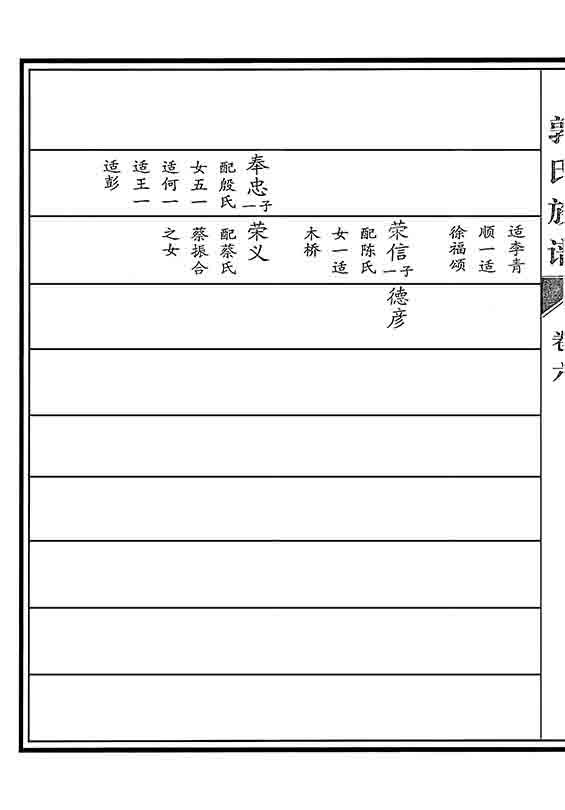 郭氏族谱
卷六
奉忠一子
配殷氏
女五一
适何一
适王一
适彭
适李青
顺一适
徐福颂
荣信一子
配陈氏
女一适
木桥
荣义
配蔡氏
蔡振合
之女
德彦